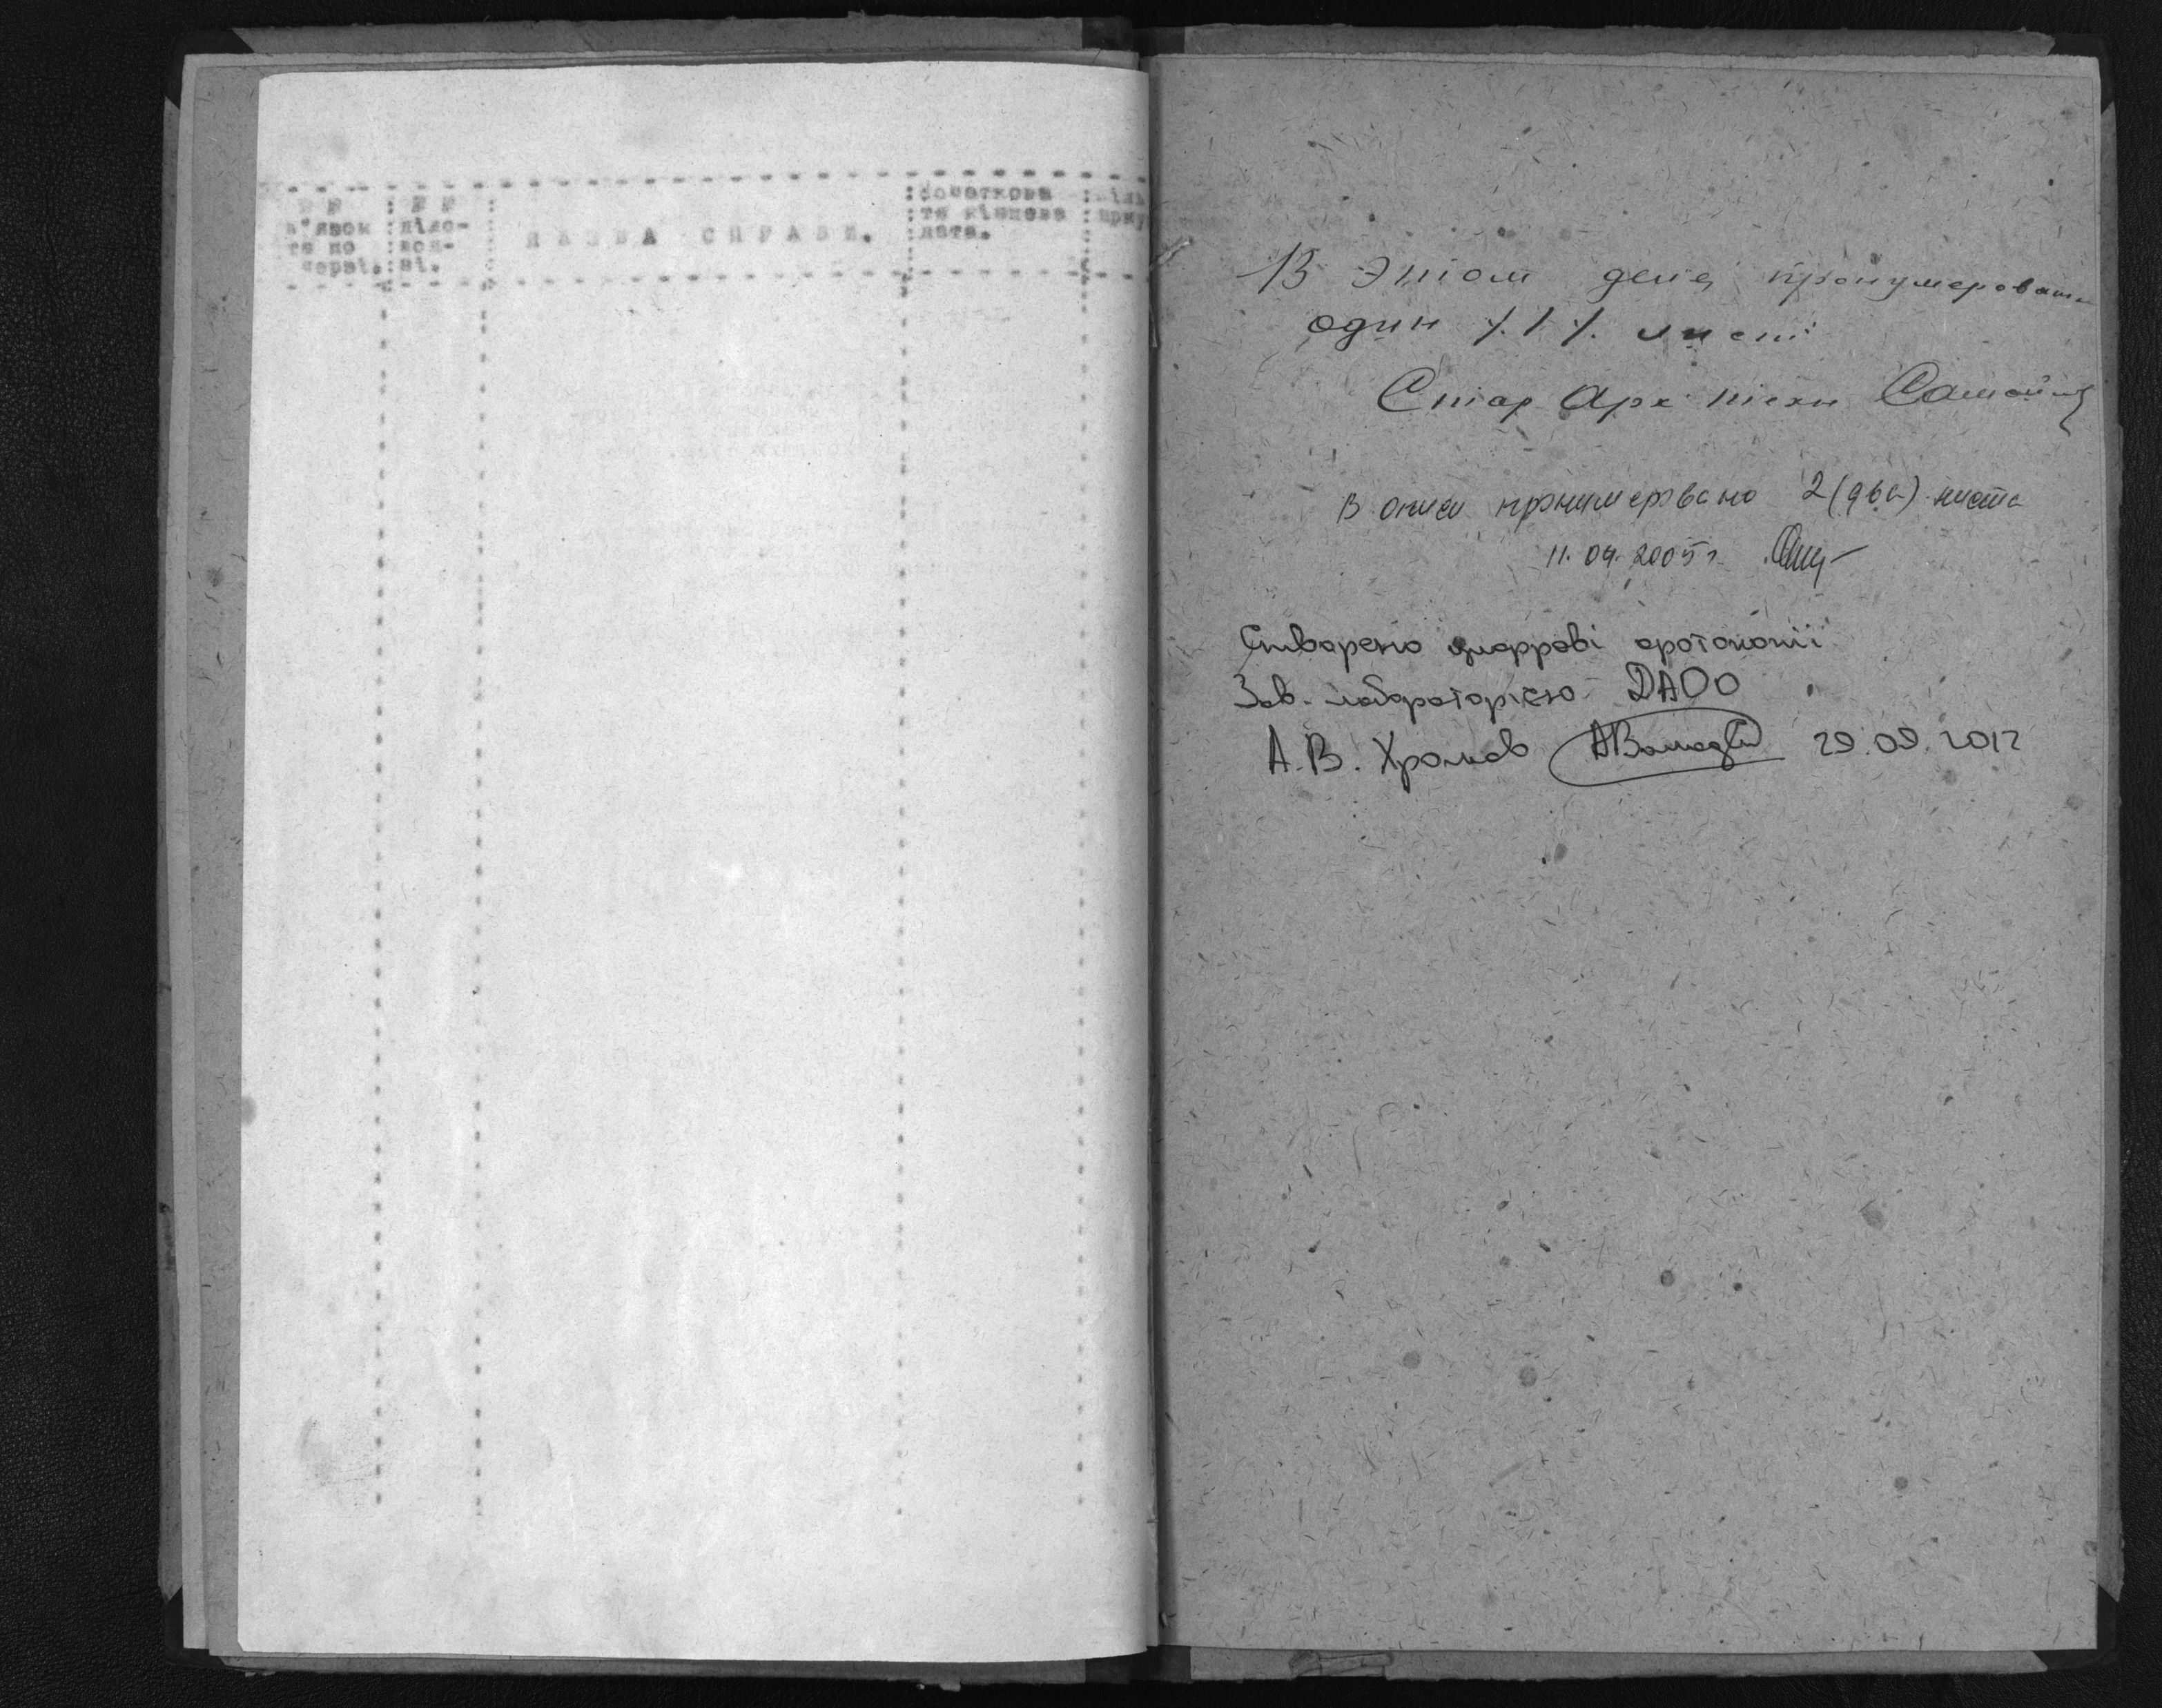 № №
в'язок
та по
черзі.
№ №
діло-
вод-
ні.
НАЗВА СПРАВИ.
початкова
та кінцева
дата.
В этом деле пронумерован
один /1/ лист
Стар Арх техн
В описи пронумеровано 2 (два) листа
11.04.2005 г.
Створено цифрові фотокопії
Зав. лабораторією ДАОО
А.В. Хромов 29.09.2012